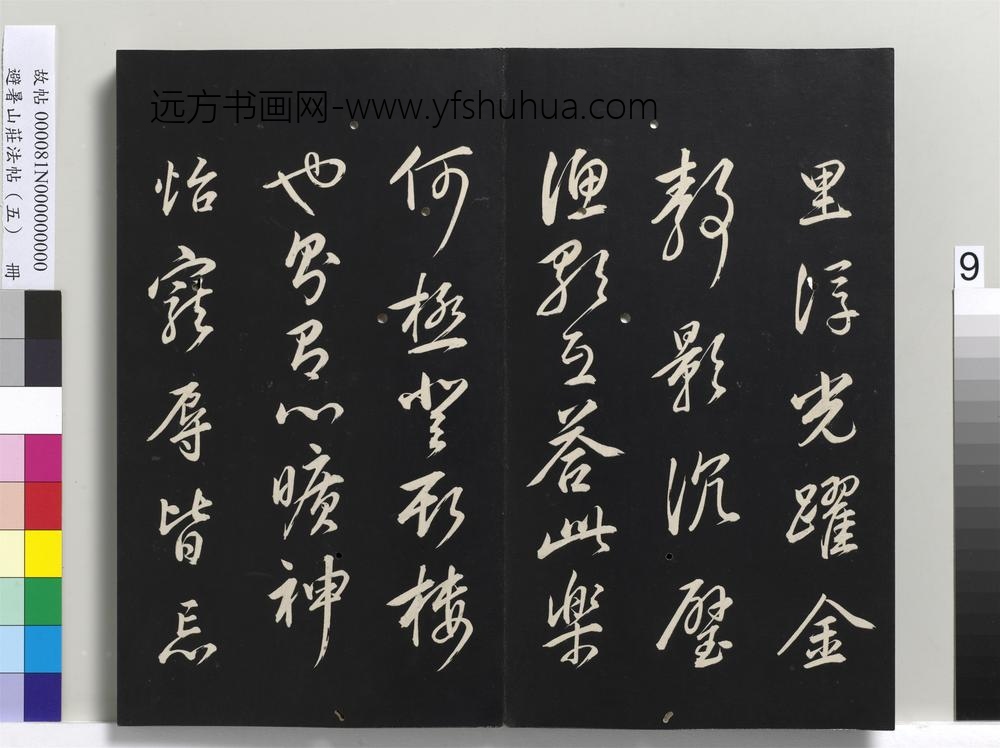 远方书画网-www.yfshuhua.com
里浮光躍金
靜影沉璧
漁歌互荅此樂
何極登斯樓
也則有心曠神
怡寵辱皆忘
故帖 000081N000000000
避暑山莊法帖（五） 冊
9